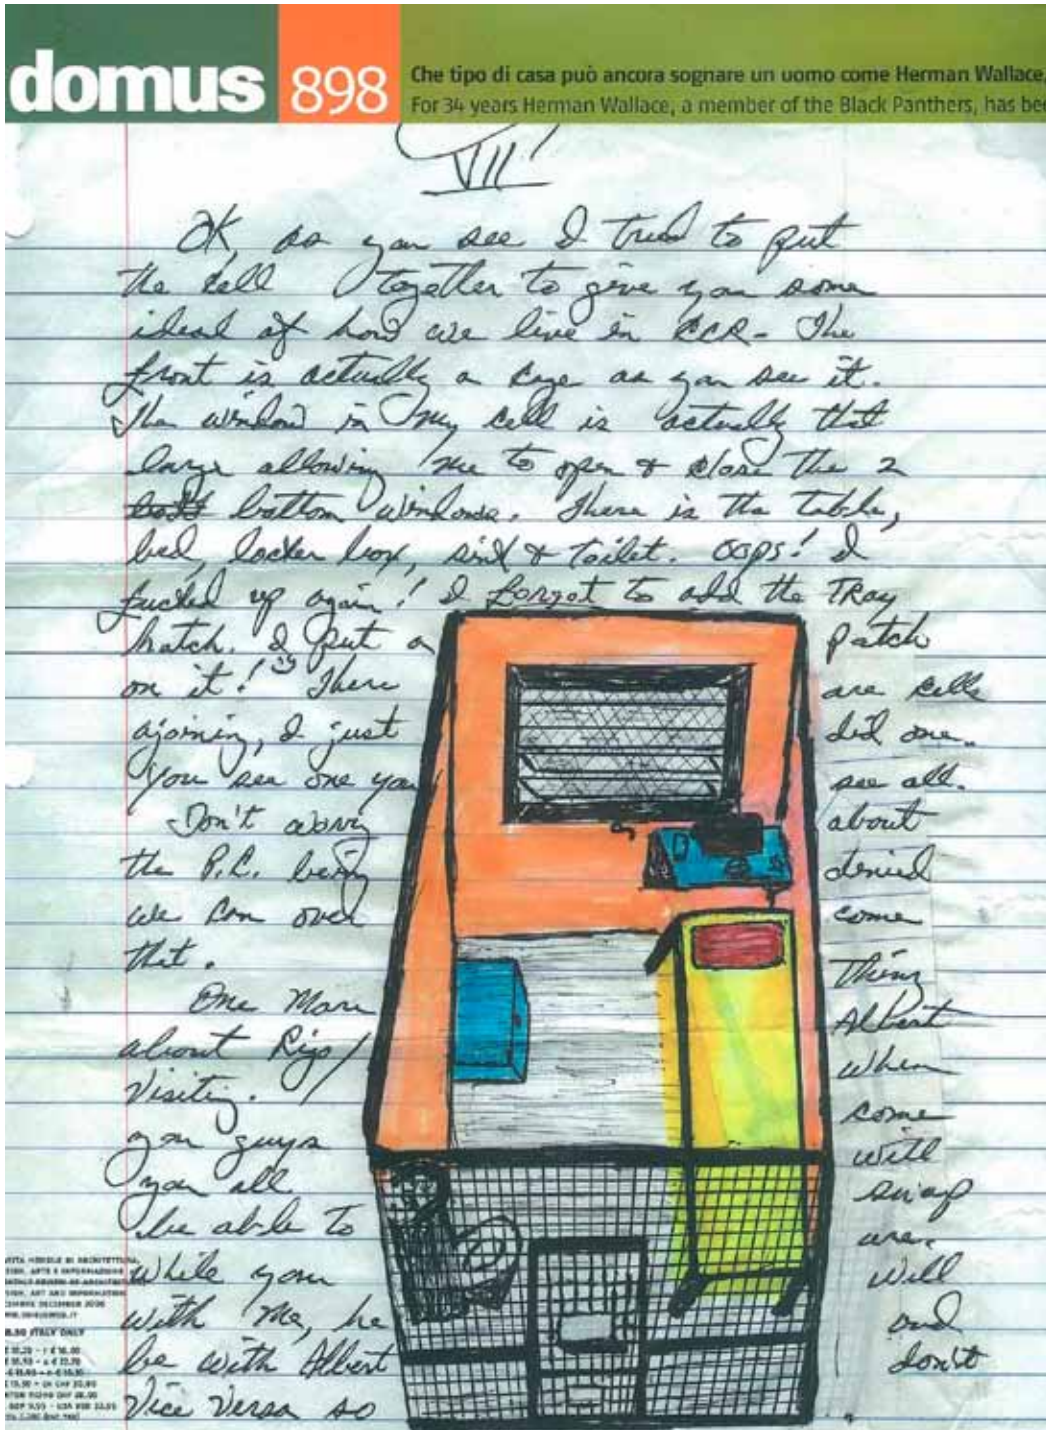 domus 898
Che tipo di casa può ancora sognare un uomo come Herman Wallace,
For 34 years Herman Wallace, a member of the Black Panthers, has bee
VII
OK, as you see I tried to put
the cell together to give you some
ideal of how we live in CCR- The
front is actually a cage as you see it.
The window in my cell is actually that
large allowing me to open & close the 2
bottom windows. There is the table,
bed, locker box, sink & toilet. OOPS! I
fucked up again! I forgot to add the TRay
hatch. I put a patch
on it! There are cells
ajoining, I just did one..
You see one you see all.
Don't worry about
the P.C. being denied
we can over come
that.
One More Thing
about Rigo/ Albert
Visiting. When
you guys come
you all will
be able to swap
while you are..
with me, he will
be with Albert and
Vice Versa so don't
DESIGN, ART AND INFORMATION
DECEMBER 2006
ITALY ONLY